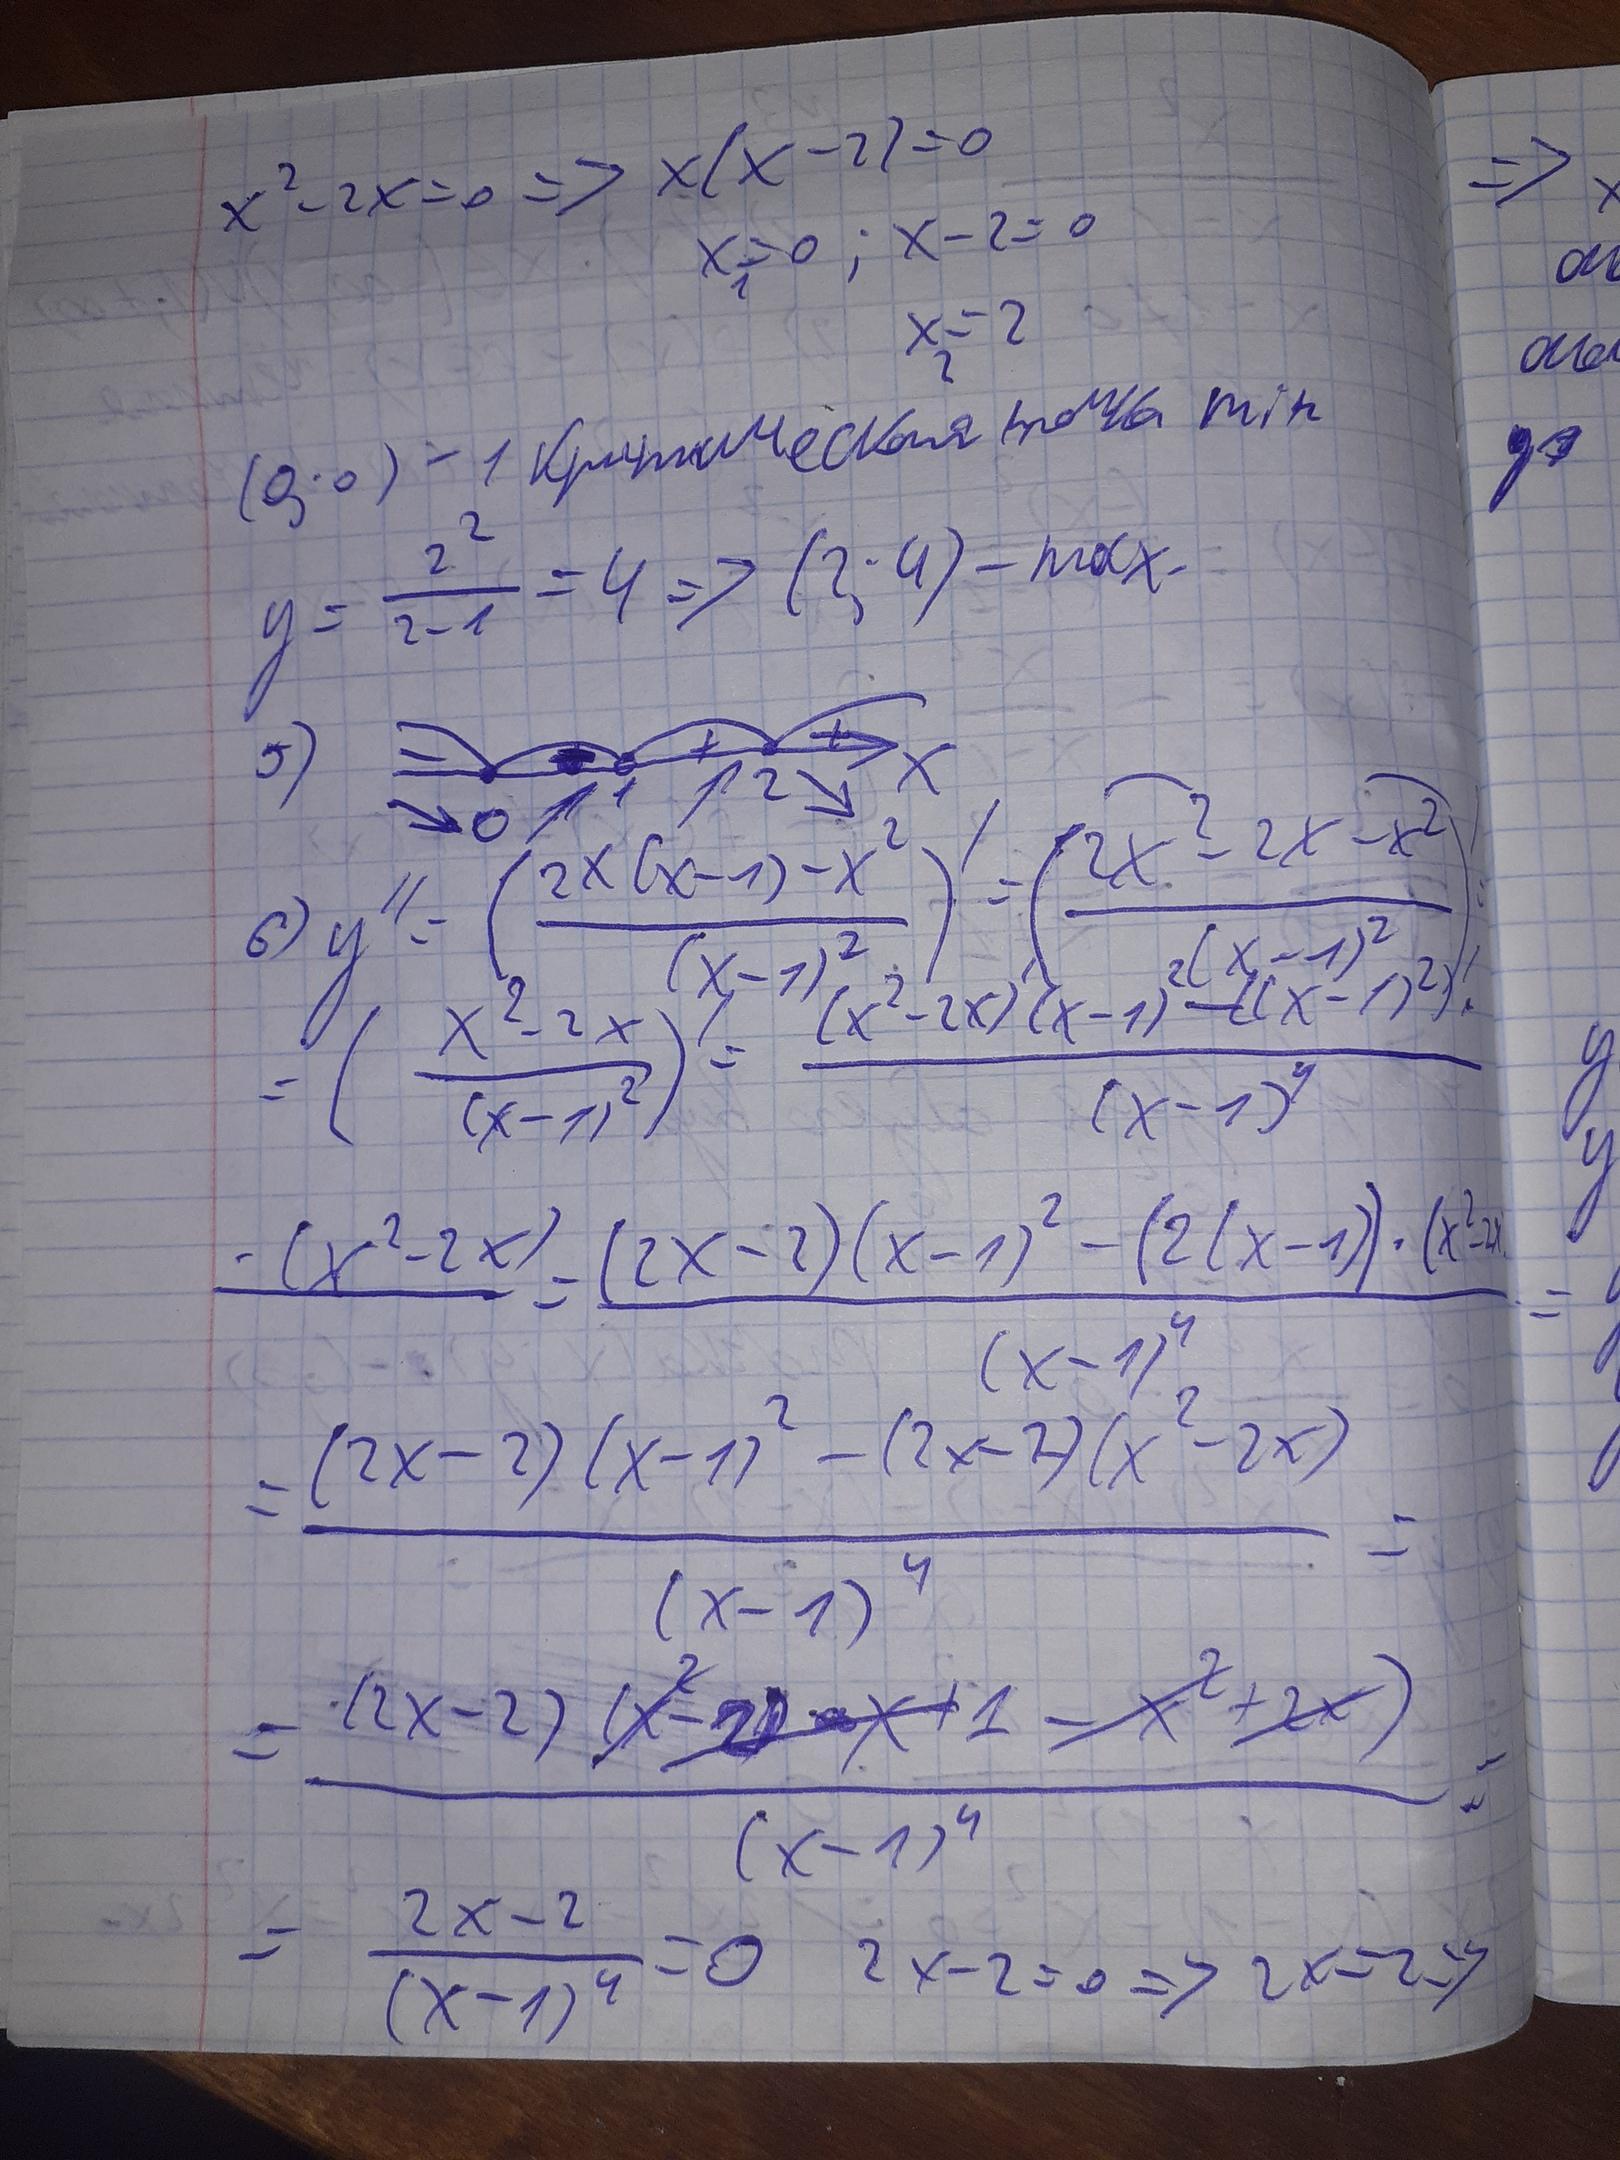 x² - 2x = 0 => x(x - 2) = 0
x₁ = 0 ; x - 2 = 0
x₂ = 2
(0; 0) - 1 критическая точка min
y = 2²/(2-1) = 4 => (2; 4) - max.
5) - + + x
0 1 2
6) y'' = ((2x(x-1) - x²)/(x-1)²)' = ((2x² - 2x - x²)/(x-1)²)' =
= ((x² - 2x)/(x-1)²)' = ((x² - 2x)'(x-1)² - ((x-1)²)' ·)/(x-1)⁴
· (x² - 2x) = ((2x - 2)(x - 1)² - (2(x-1)) · (x² - 2x))/(x-1)⁴ =
= ((2x - 2)(x-1)² - (2x-2)(x² - 2x))/(x-1)⁴ =
= (2x-2)(x² - 2x + 1 - x² + 2x)/(x-1)⁴ =
= (2x-2)/(x-1)⁴ = 0 2x-2 = 0 => 2x = 2 =>
=> x
y
y